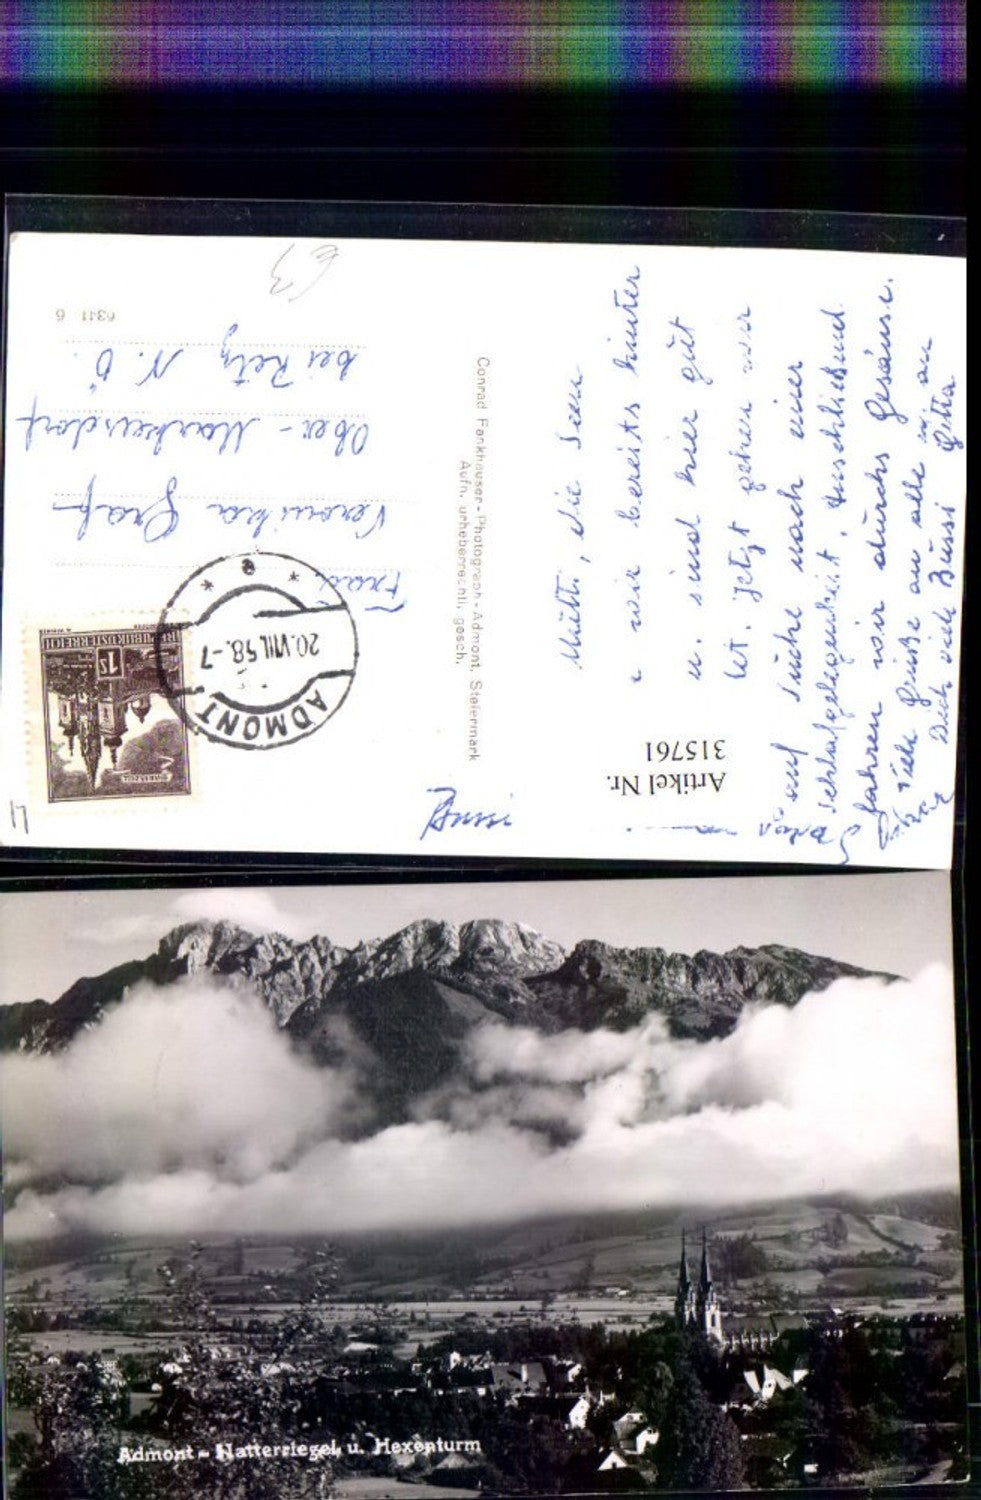 Mutti, die Seen
wir bereits hinter
u. sind hier gut
Jetzt gehen wir
auf Suche nach einer
Schlafgelegenheit. Anschließend
fahren wir durchs Gesäuse.
Viele Grüße an alle
Dich viele Bussi Gitta
Conrad Fankhauser - Photograph - Admont, Steiermark
Aufn. urheberrechtl. gesch.
Frau
Veronika Graf
Ober - Markersdorf
bei Retz N. Ö.
6341 6
€ 3
REPUBLIK ÖSTERREICH
1 S
ADMONT
20.VIII.58.-7
Artikel Nr.
315761
17
Admont - Natterriegel u. Hexenturm